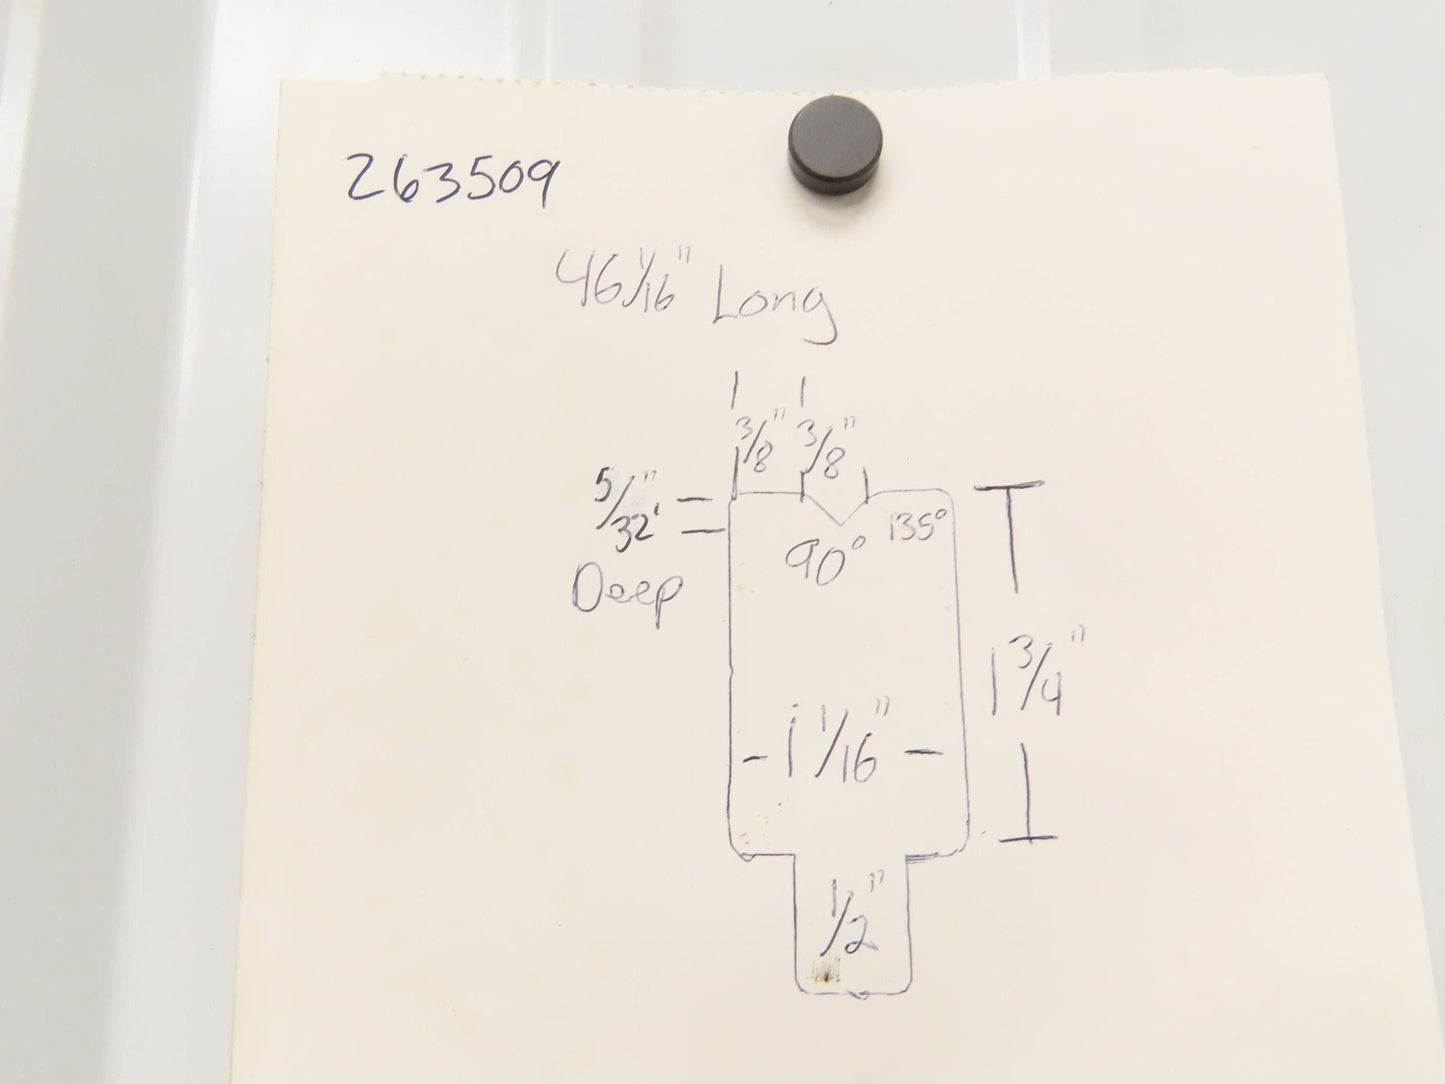 263509
46 1/16" Long
3/8" 3/8"
5/32"
Deep
90° 135°
1 3/4"
1 1/16"
1/2"